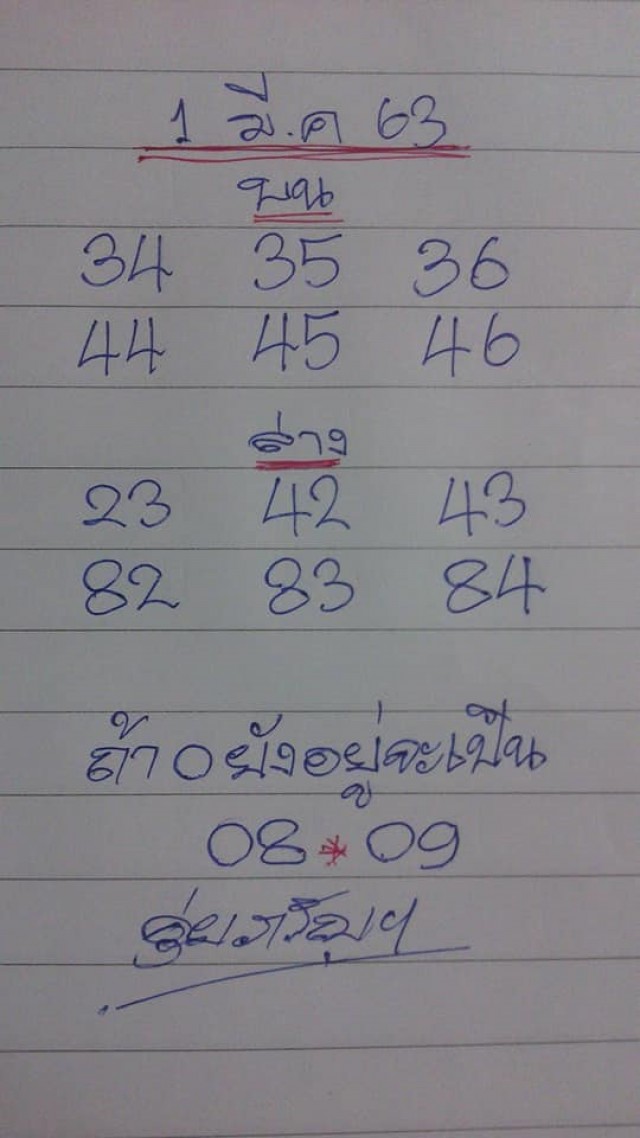 1 มี.ค 63
บน
34 35 36
44 45 46
ล่าง
23 42 43
82 83 84
ถ้า 0 ยังอยู่จะเป็น
08 * 09